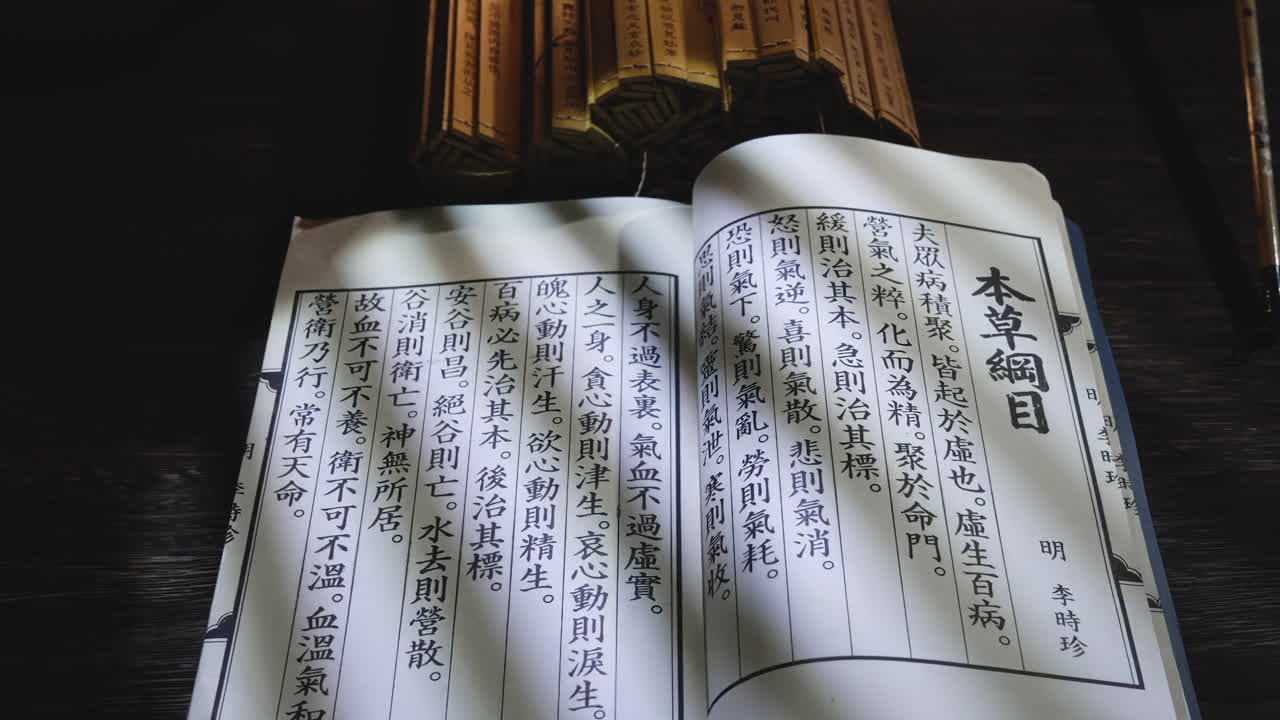 本草綱目
明 李時珍
夫眾病積聚。皆起於虛也。虛生百病。
營氣之粹。化而為精。聚於命門。
緩則治其本。急則治其標。
怒則氣逆。喜則氣散。悲則氣消。
恐則氣下。驚則氣亂。勞則氣耗。
思則氣結。靈則氣泄。寒則氣收。
人身不過表裏。氣血不過虛實。
人之一身。貪心動則津生。哀心動則淚生。
愧心動則汗生。欲心動則精生。
百病必先治其本。後治其標。
安谷則昌。絕谷則亡。水去則營散。
谷消則衛亡。神無所居。
故血不可不養。衛不可不溫。血溫氣和
營衛乃行。常有天命。
明 李時珍
明 李時珍